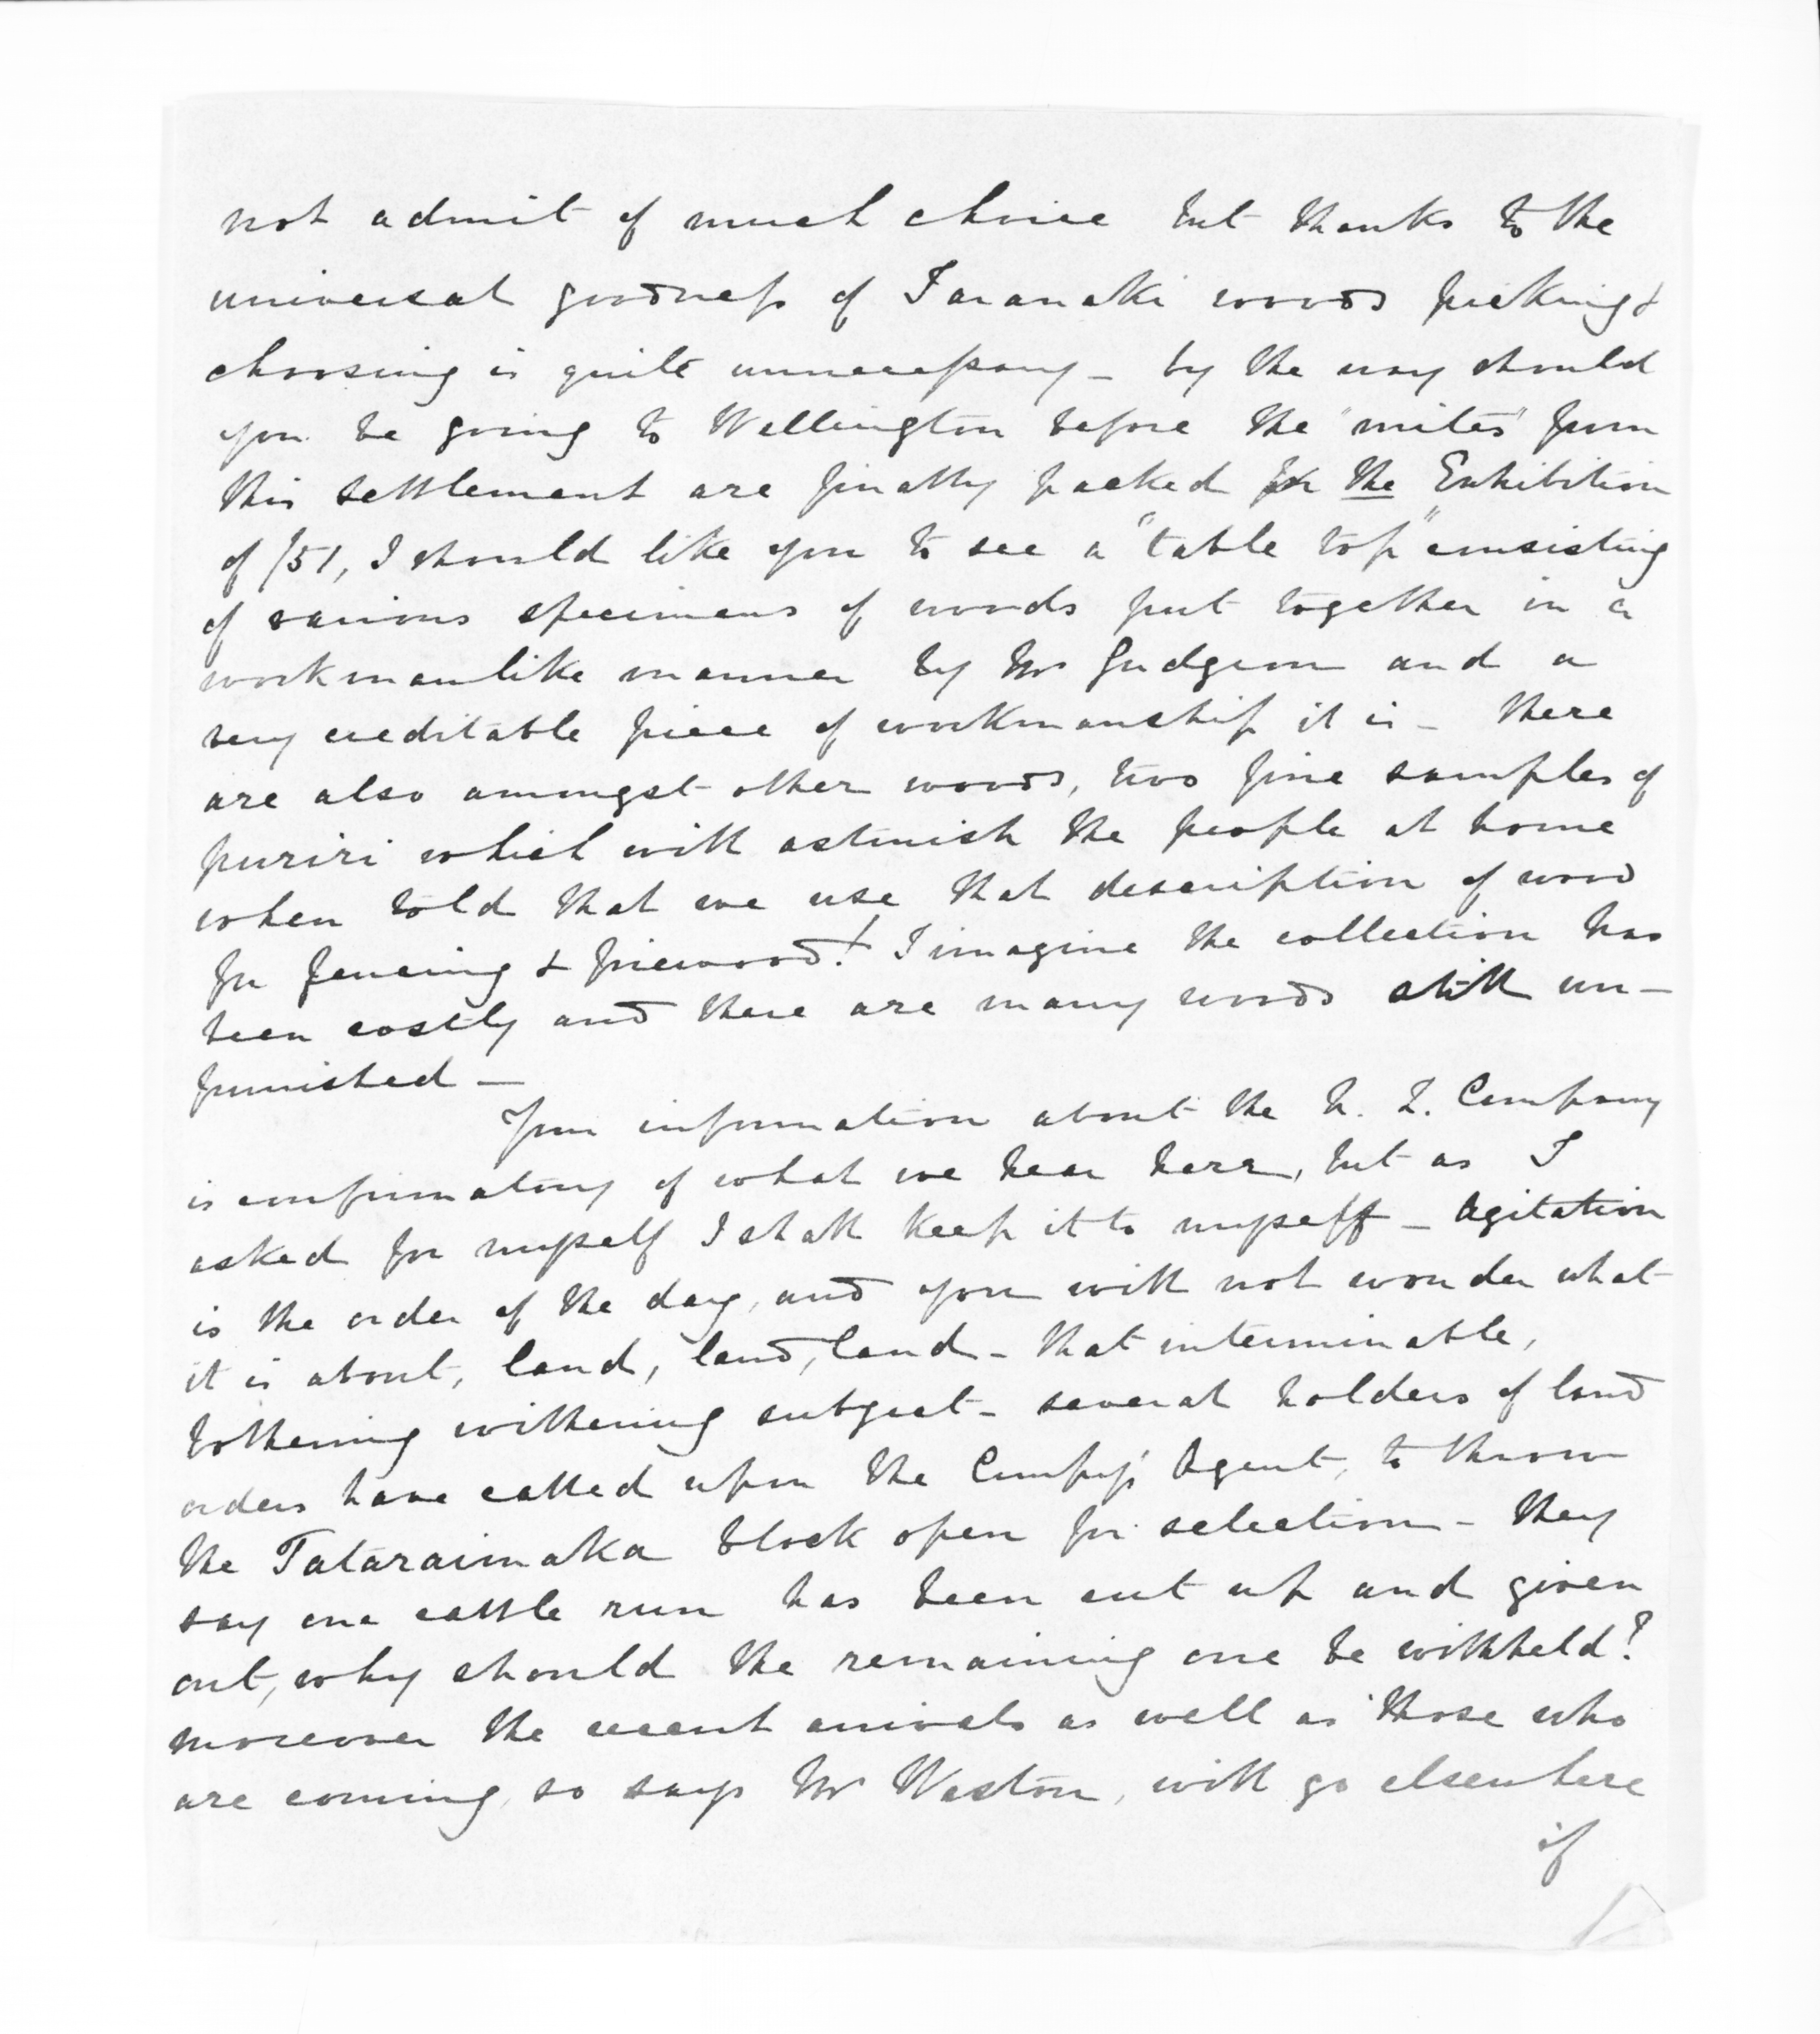 not admit of much choice but thanks to the
universal goodness of Taranaki woods picking &
choosing is quite unnecessary - by the way should
you be going to Wellington before the "mites" from
this settlement are finally packed for the Exhibition
of /51, I should like you to see a "table top" consisting
of various specimens of woods put together in a
workmanlike manner by Mr Gudgeon and a
very creditable piece of workmanship it is - there
are also amongst other woods, two fine samples of
puriri which will astonish the people at home
when told that we use that description of wood
for fencing & firewood! I imagine the collection has
been costly and there are many woods still un-
furnished -
Your information about the N. Z. Company
is confirmatory of what we hear here, but as I
asked for myself I shall keep it to myself - Agitation
is the order of the day, and you will not wonder what
it is about, land, land, land - that interminable,
bothering withering subject - several holders of land
orders have called upon the Compy's Agent, to throw
the Tataraimaka block open for selection - they
say one cattle run has been cut up and given
out, why should the remaining one be withheld?
moreover the recent arrivals as well as those who
are coming, so says Mr Weston, will go elsewhere
if